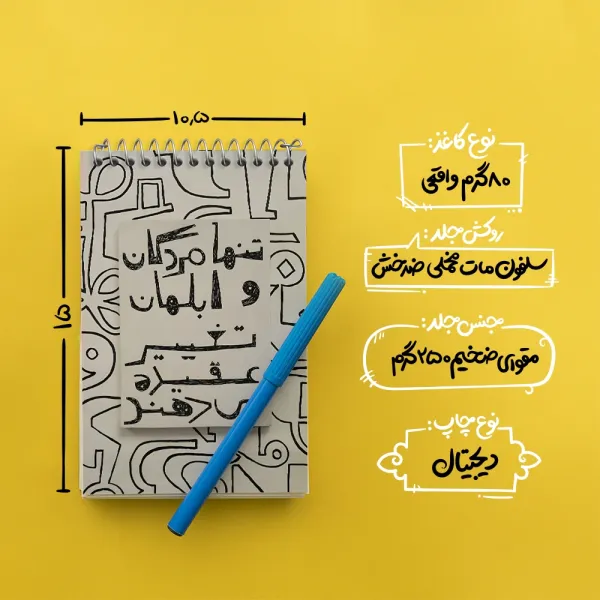 ۱۰٫۵
۱۵
تنها مردگان
و ابلهان
تغییر
عقیده
دهند
نوع کاغذ:
۸۰گرم واقعی
روکش جلد:
سلفون مات مخملی ضدخش
جنس جلد:
مقوای ضخیم ۲۵۰ گرم
نوع چاپ:
دیجیتال